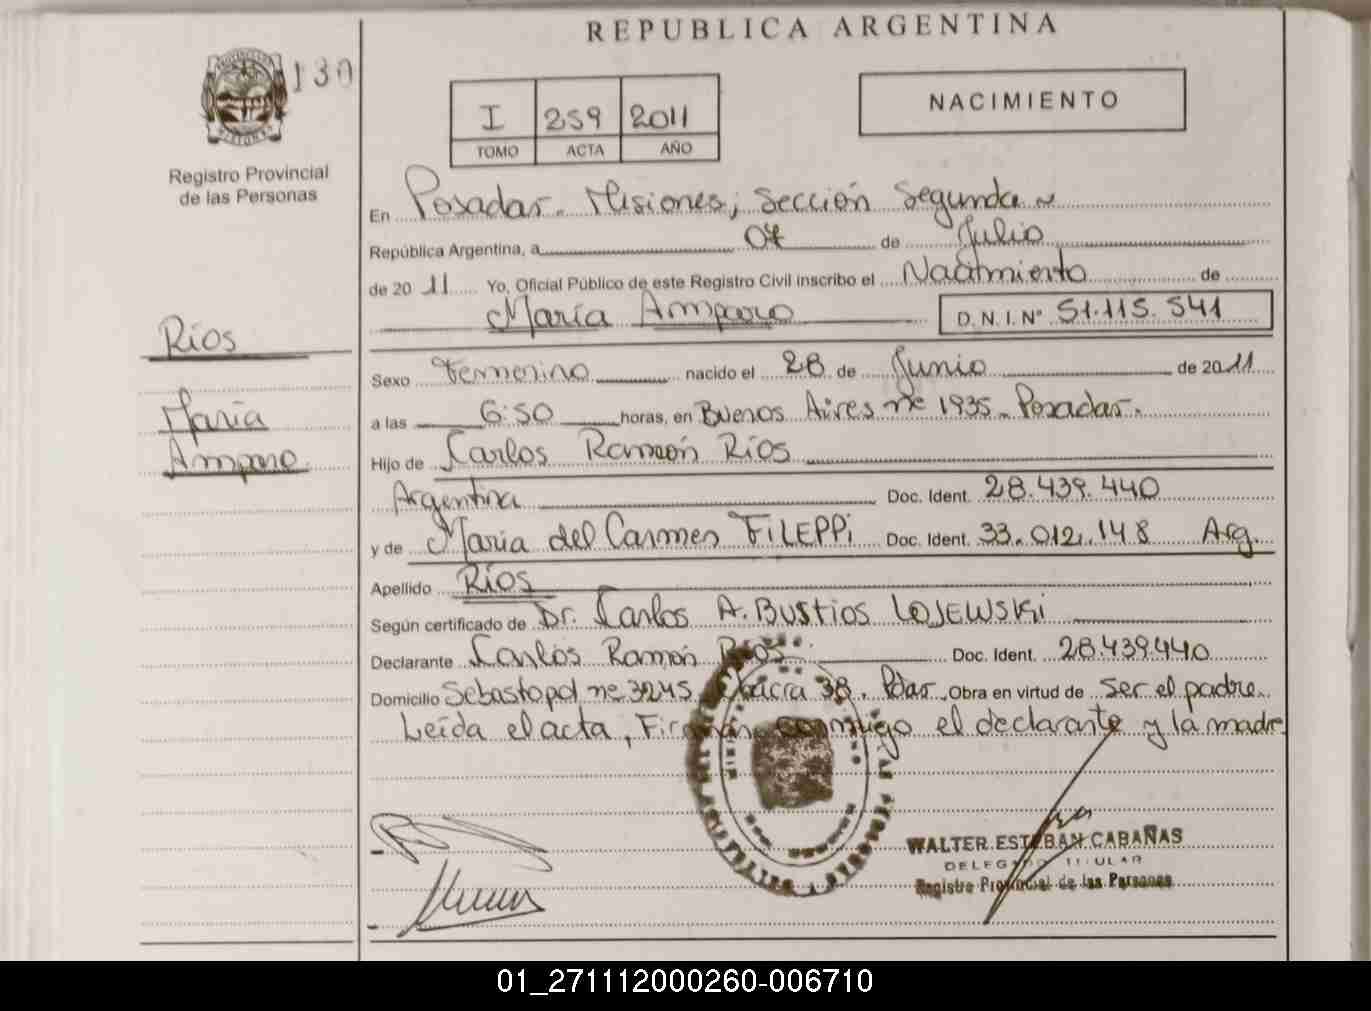 REPUBLICA ARGENTINA
130
I 259 2011
TOMO ACTA AÑO
NACIMIENTO
Registro Provincial
de las Personas
En Posadas. Misiones, Sección Segunda
República Argentina, a 07 de Julio
de 2011 Yo, Oficial Público de este Registro Civil inscribo el Nacimiento de
María Amparo D.N.I.Nº 51.115.541
Ríos
María
Amparo
Sexo Femenino nacido el 28 de Junio de 2011
a las 6:50 horas, en Buenos Aires nº 1935. Posadas.
Hijo de Carlos Ramón Ríos
Argentina Doc. Ident. 28.439.440
y de María del Carmen FiLEPPi Doc. Ident. 33.012.148 Arg.
Apellido Ríos
Según certificado de Dr. Carlos A. Bustios LOJEWSKi
Declarante Carlos Ramón Ríos Doc. Ident. 28.439.440
Domicilio Sebastopol nº 3245 Chacra 38. Pdas. Obra en virtud de ser el padre.
Leída el acta, Firman conmigo el declarante y la madre
WALTER ESTEBAN CABAÑAS
DELEGADO TITULAR
Registro Provincial de las Personas
01_271112000260-006710